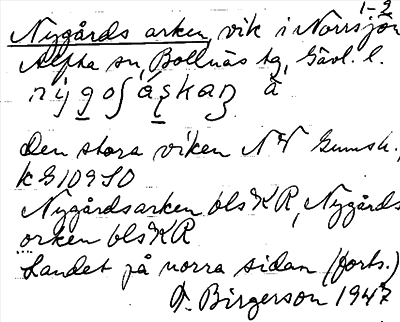 1-2
Nygårdsarken, vik i Norrsjön
Alfta sn, Bollnäs tg, Gävl. l.
å
den stora viken NV
kG109SO
Nygårdsarken bls KR, Nygårds
orken bls KR
Landet på norra sidan (forts.)
F. Birgerson 1947